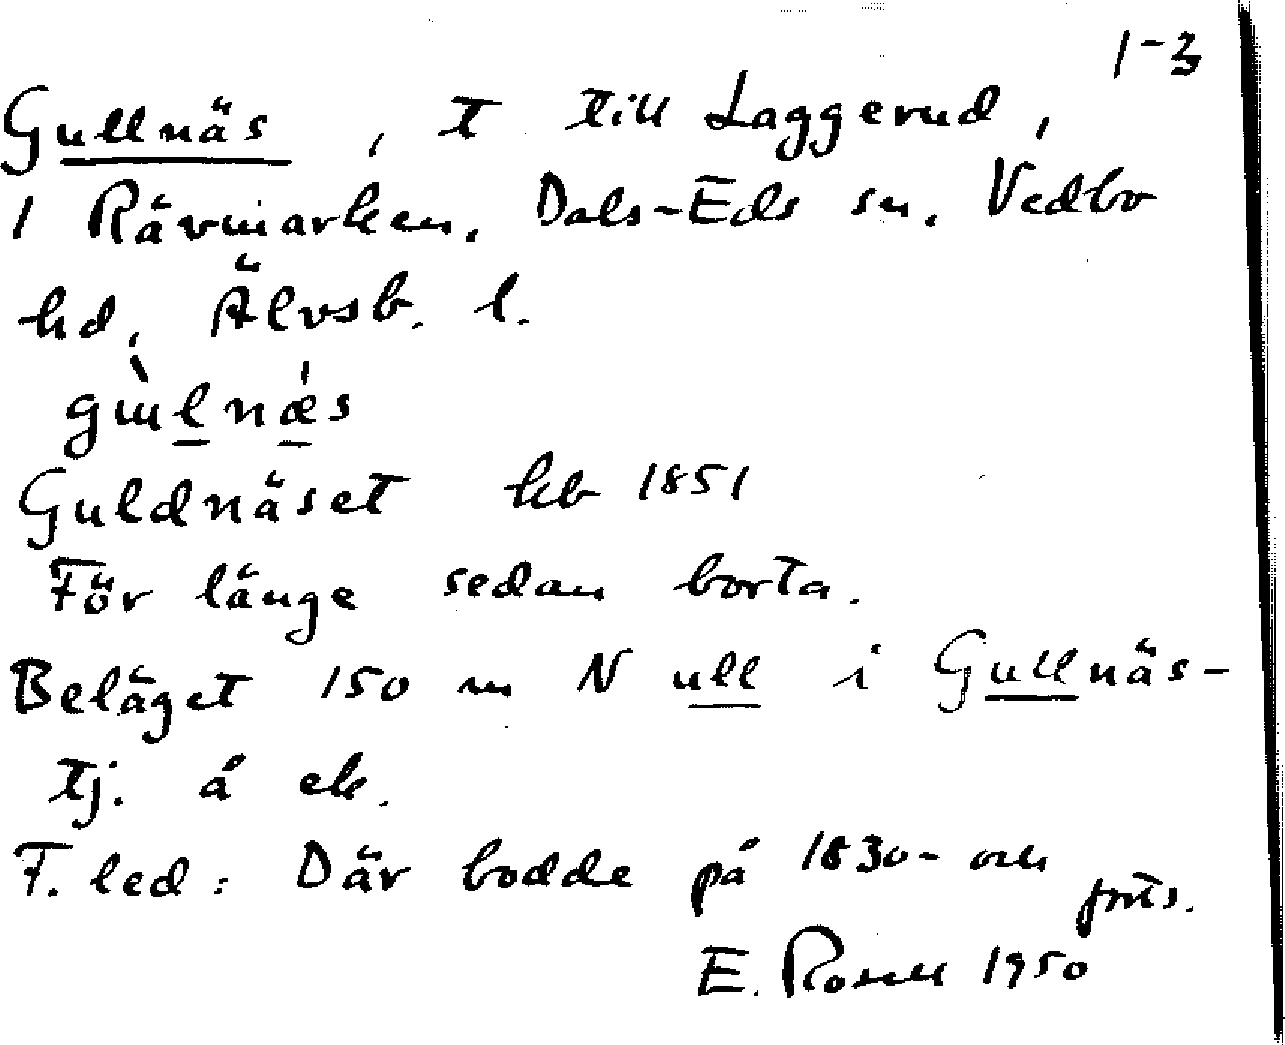 1-3
Gullnäs, t till Laggerud,
1 Rävmarken, Dals-Eds sn. Vedbo
hd, Älvsb. l.
Guldnäset kb 1851
För länge sedan borta.
Beläget 150 m N ull i Gullnäs-
tj. å ek.
F. led: Där bodde på 1830- och
forts.
E. Rosell 1950